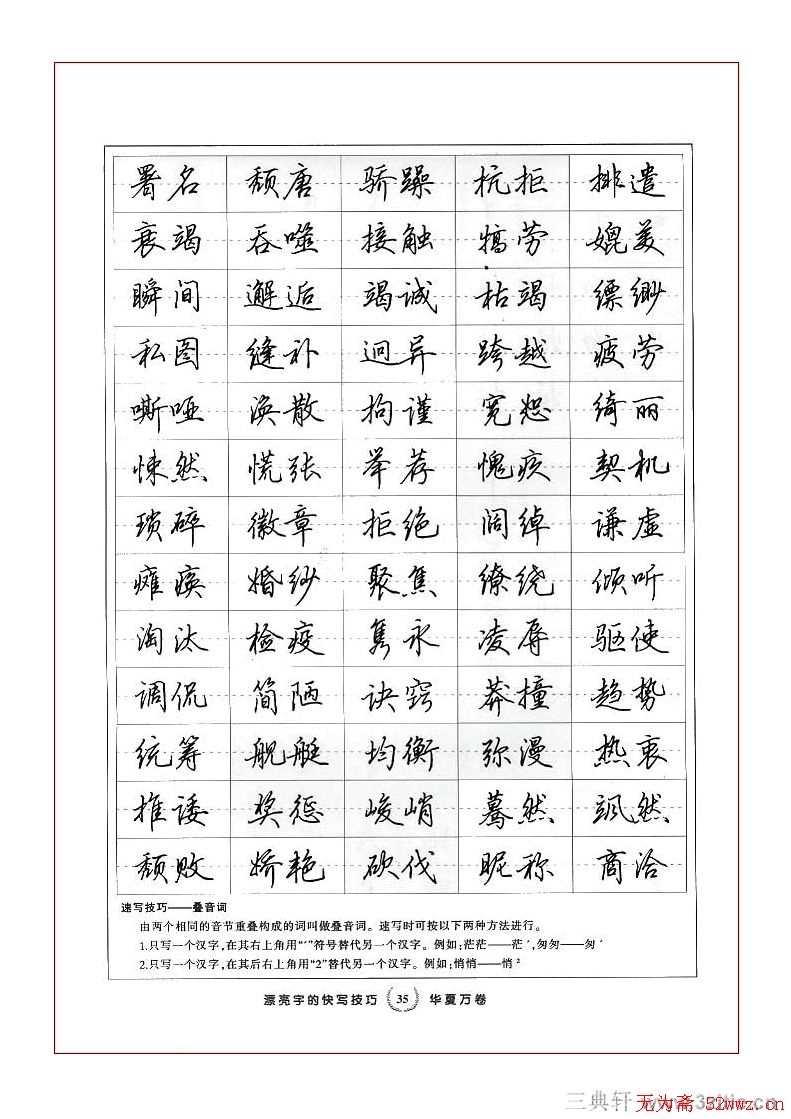 署名 颓唐 骄躁 抗拒 排遣
衰竭 吞噬 接触 犒劳 媲美
瞬间 邂逅 竭诚 枯竭 缥缈
私图 缝补 迥异 跨越 疲劳
嘶哑 涣散 拘谨 宽恕 绮丽
悚然 慌张 举荐 愧疚 契机
琐碎 徽章 拒绝 阔绰 谦虚
瘫痪 婚纱 聚焦 缭绕 倾听
淘汰 检疫 隽永 凌辱 驱使
调侃 简陋 诀窍 莽撞 趋势
统筹 舰艇 均衡 弥漫 热衷
推诿 奖惩 峻峭 蓦然 飒然
颓败 娇艳 砍伐 昵称 商洽
速写技巧——叠音词
由两个相同的音节重叠构成的词叫做叠音词。速写时可按以下两种方法进行。
1.只写一个汉字,在其右上角用“ˊ”符号替代另一个汉字。例如:茫茫——茫ˊ,匆匆——匆ˊ
2.只写一个汉字,在其后右上角用“2”替代另一个汉字。例如:悄悄——悄²
漂亮字的快写技巧 35 华夏万卷
三典轩
无为斋 52wwz.cn